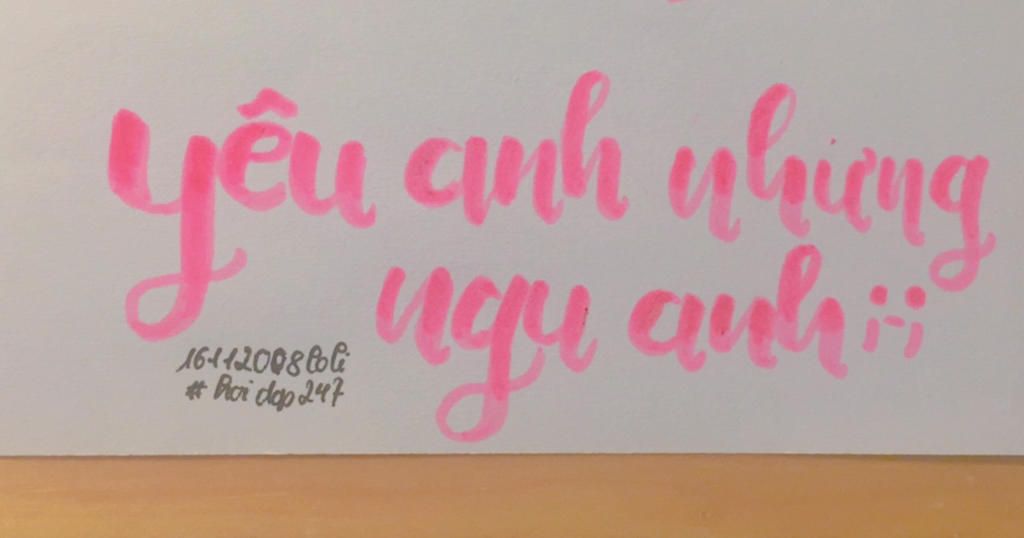 yêu anh nhưng
ngu anh
16112008 Loli
# hoi dap 247